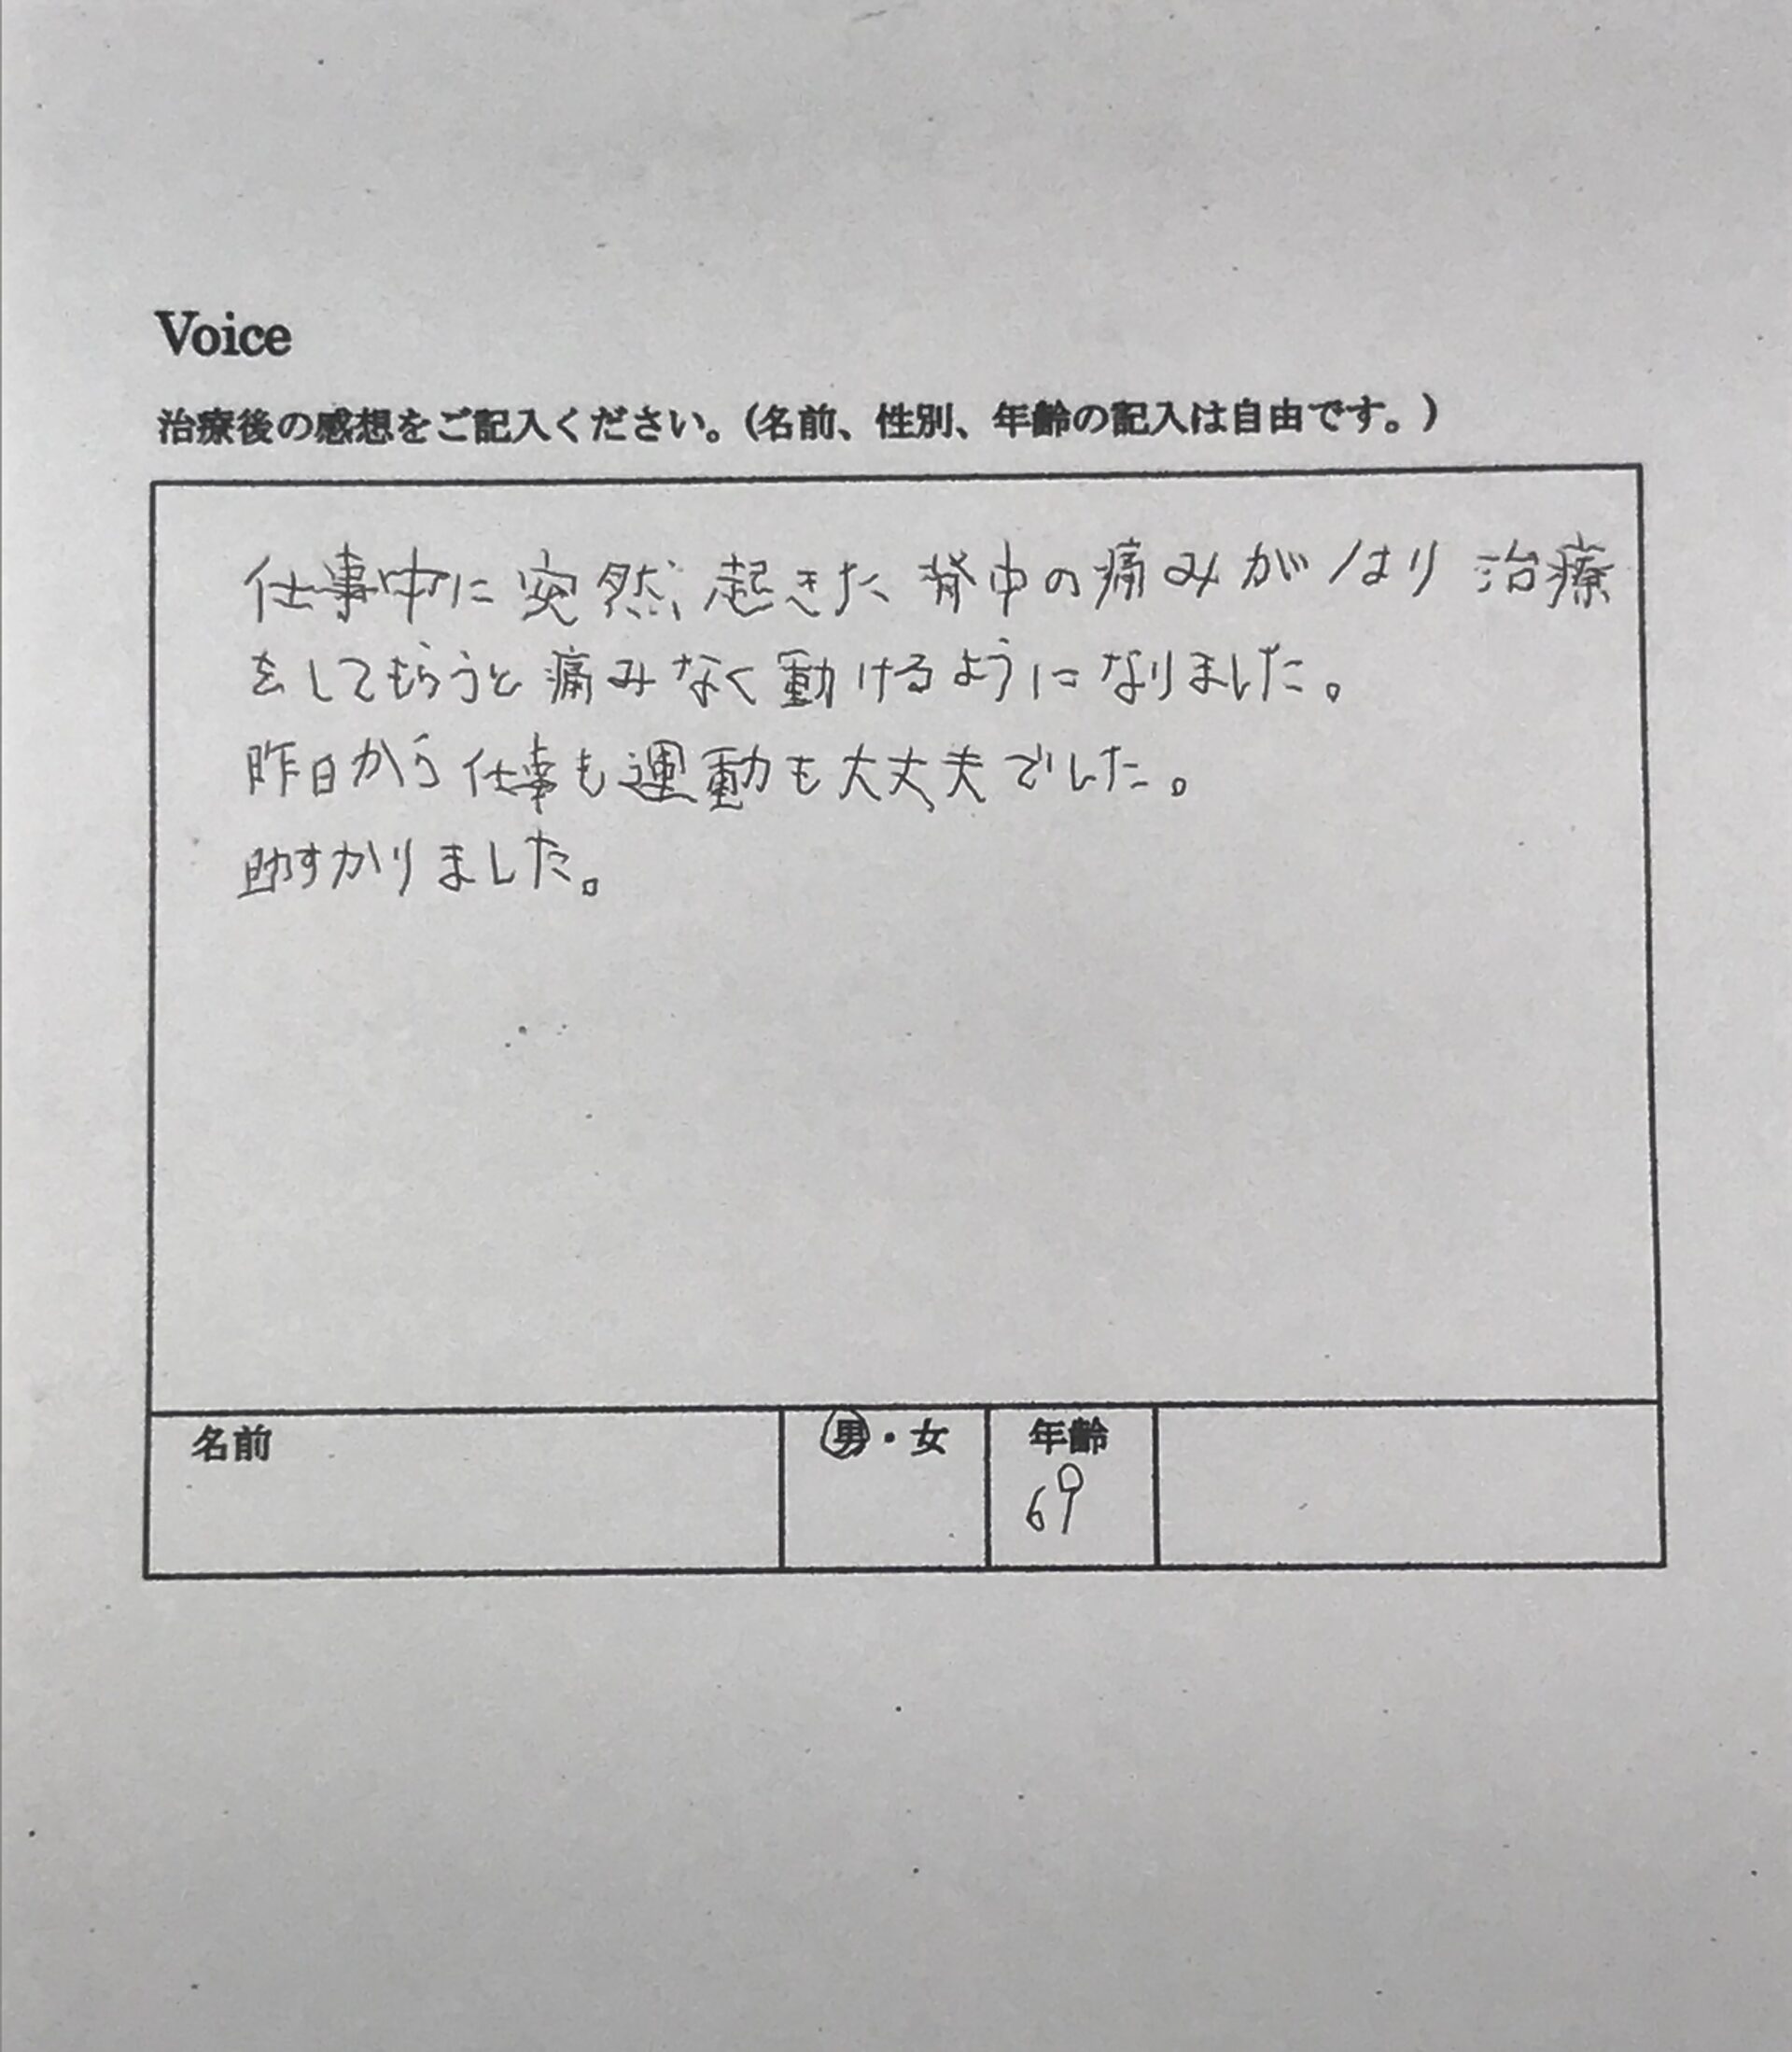 Voice
治療後の感想をご記入ください。(名前、性別、年齢の記入は自由です。)
仕事中に突然起きた背中の痛みがはり治療
をしてもらうと痛みなく動けるようになりました。
昨日から仕事も運動も大丈夫でした。
助すかりました。
名前
男・女
年齢
69